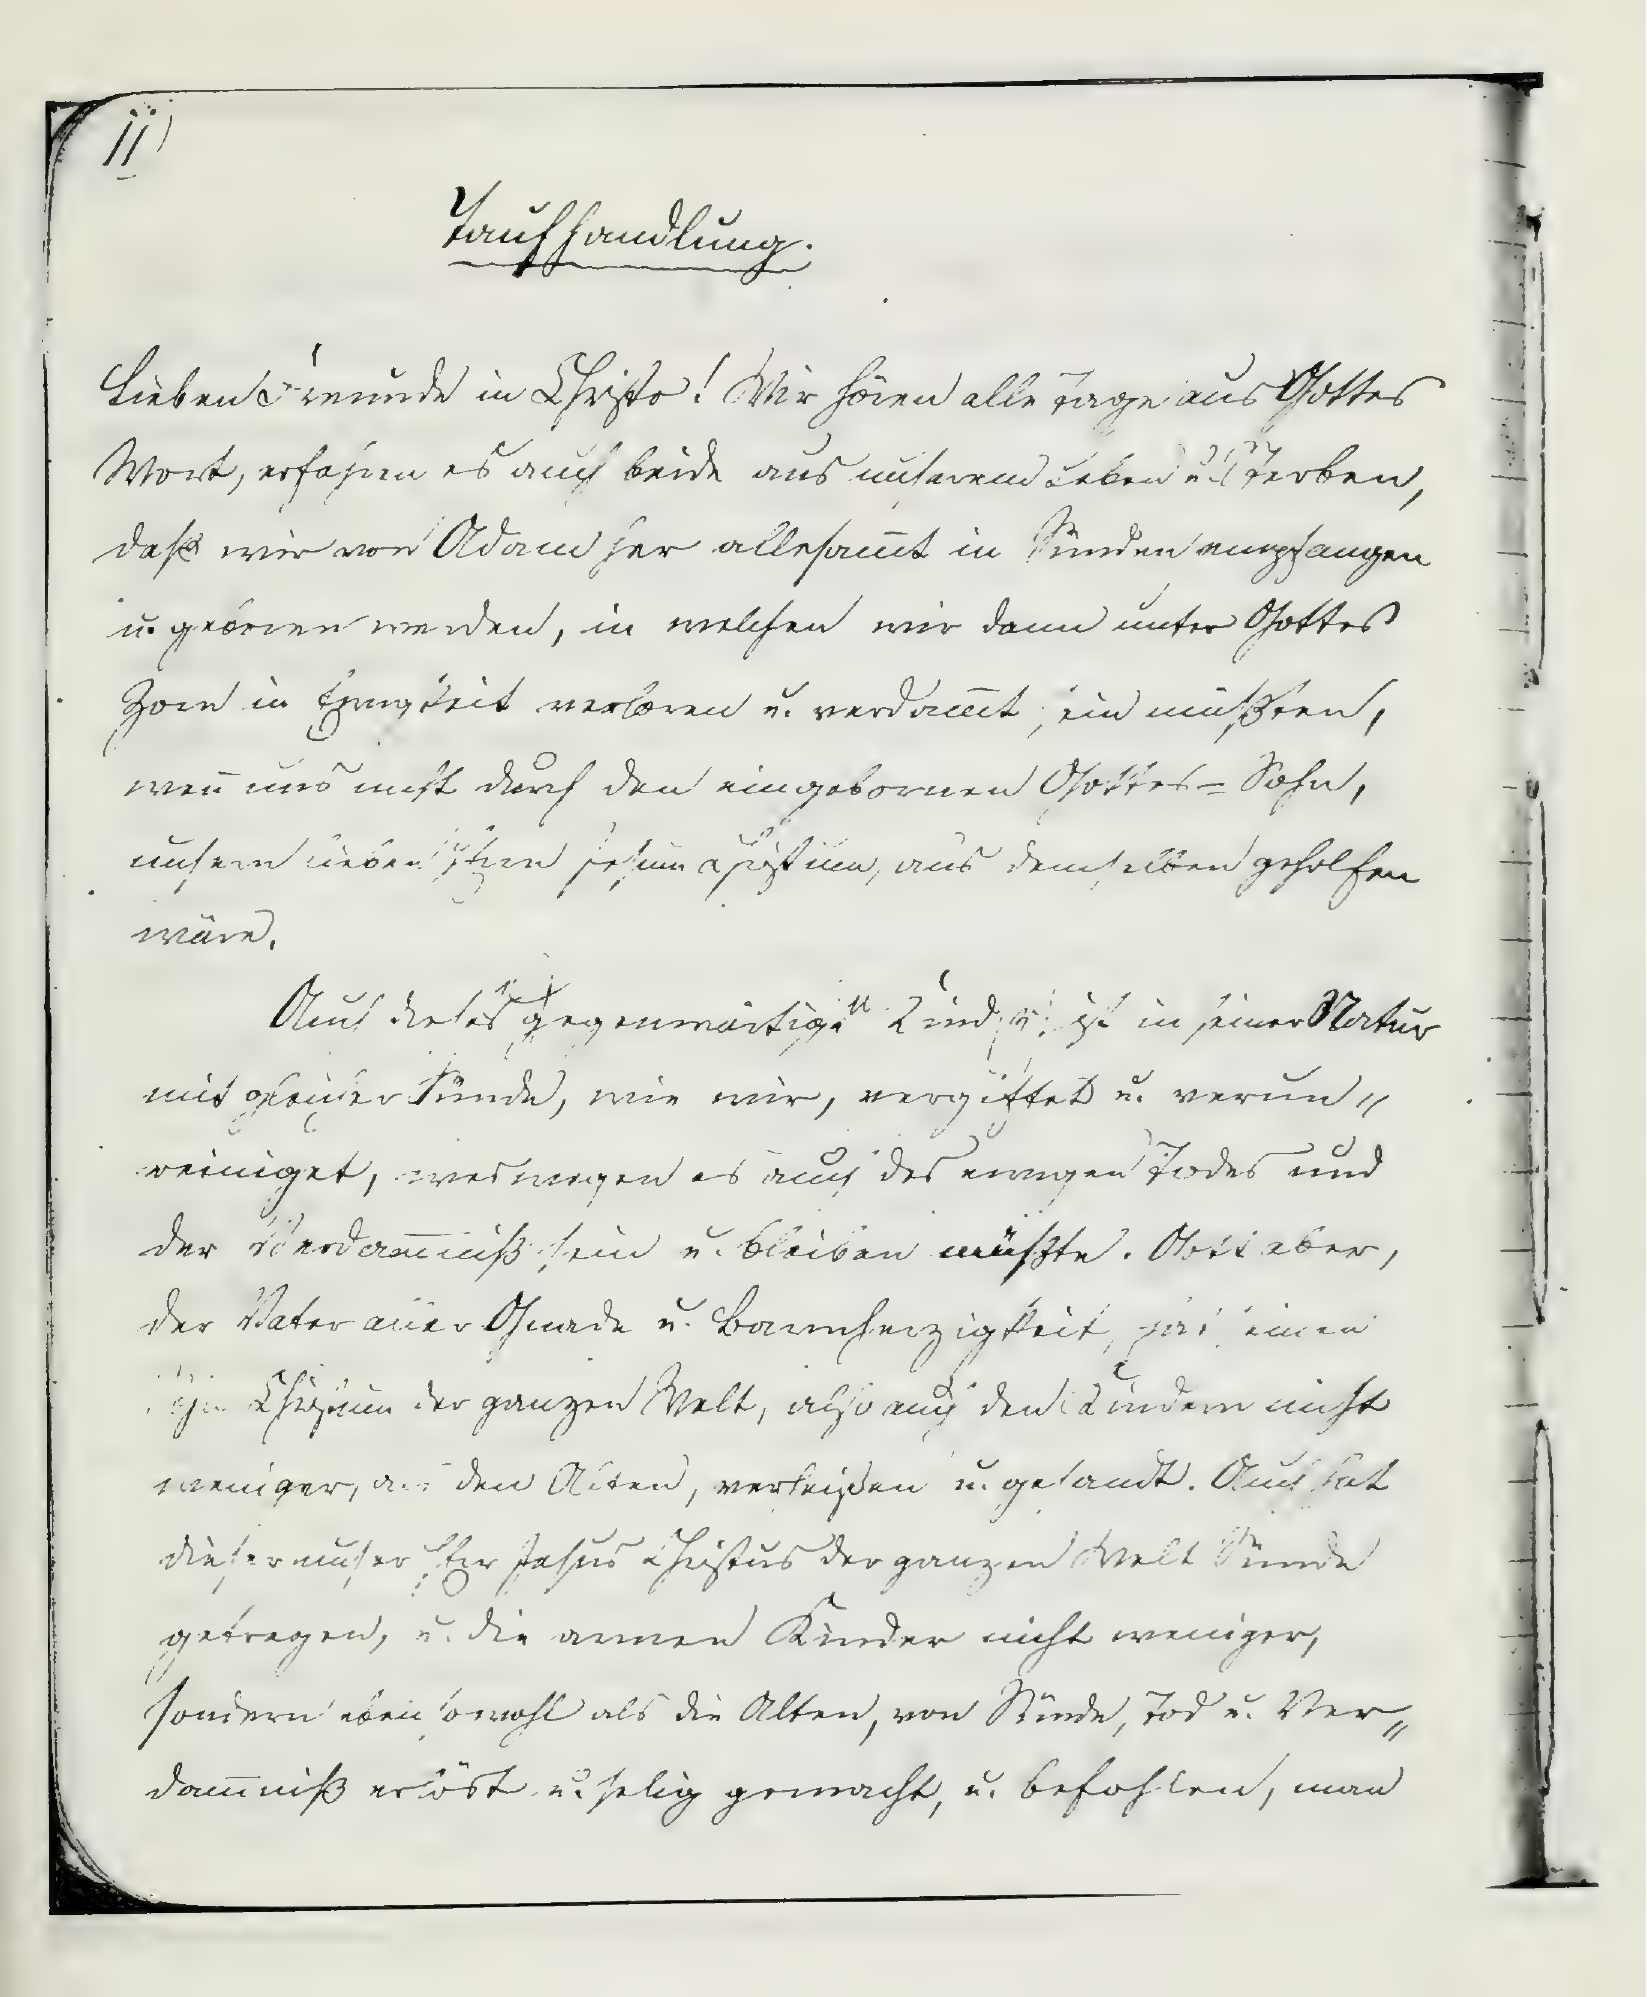 11)
Taufhandlung.
Lieben Freunde in Christo! Wir hören alle Tage aus Gottes
Wort, erfahren es auch beide aus unserem Leben u. Sterben,
daß wir von Adam her allesam̅t in Sünden empfangen
u. geboren werden, in welchen wir dann unter Gottes
Zorn in Ewigkeit verloren u. verdam̅t sein müßten,
wen̅ uns nicht durch den eingebornen Gottes=Sohn,
unsern lieben Herrn Jesum Christum, aus demselben geholfen
wäre.
Auch dieses gegenwärtige Kind ist in seiner Natur
mit gleicher Sünde, wie wir, vergiftet u. verun„
reiniget, weswegen es auch des ewigen Todes und
der Verdam̅niß sein u. bleiben müßte. Gott aber,
der Vater aller Gnade u. Barmherzigkeit, hat seinen
Sohn Christum der ganzen Welt, also auch den Kindern nicht
weniger, als den Alten, verheißen u. gesandt. Auch hat
dieser unser Herr Jesus Christus der ganzen Welt Sünde
getragen, u. die armen Kinder nicht weniger,
sondern eben sowohl als die Alten, von Sünde, Tod u. Ver„
dam̅niß erlöst u. selig gemacht, u. befohlen, man